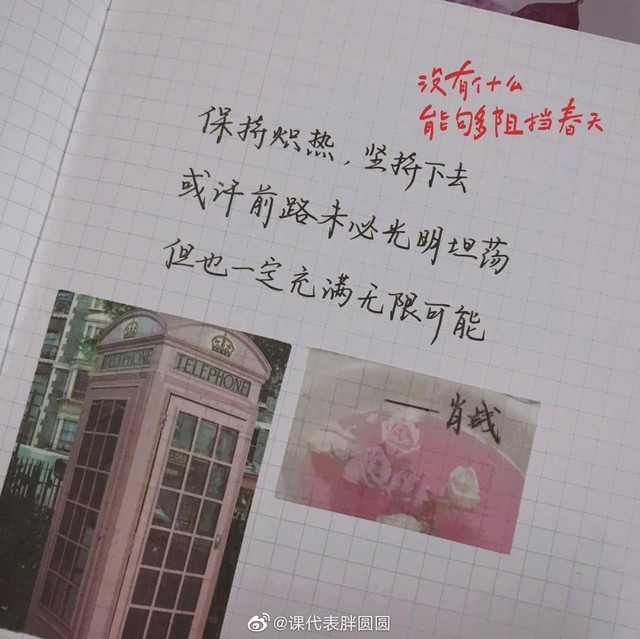 没有什么
能够阻挡春天
保持炽热，坚持下去
或许前路未必光明坦荡
但也一定充满无限可能
TELEPHONE
TELEPHONE
——肖战
@课代表胖圆圆